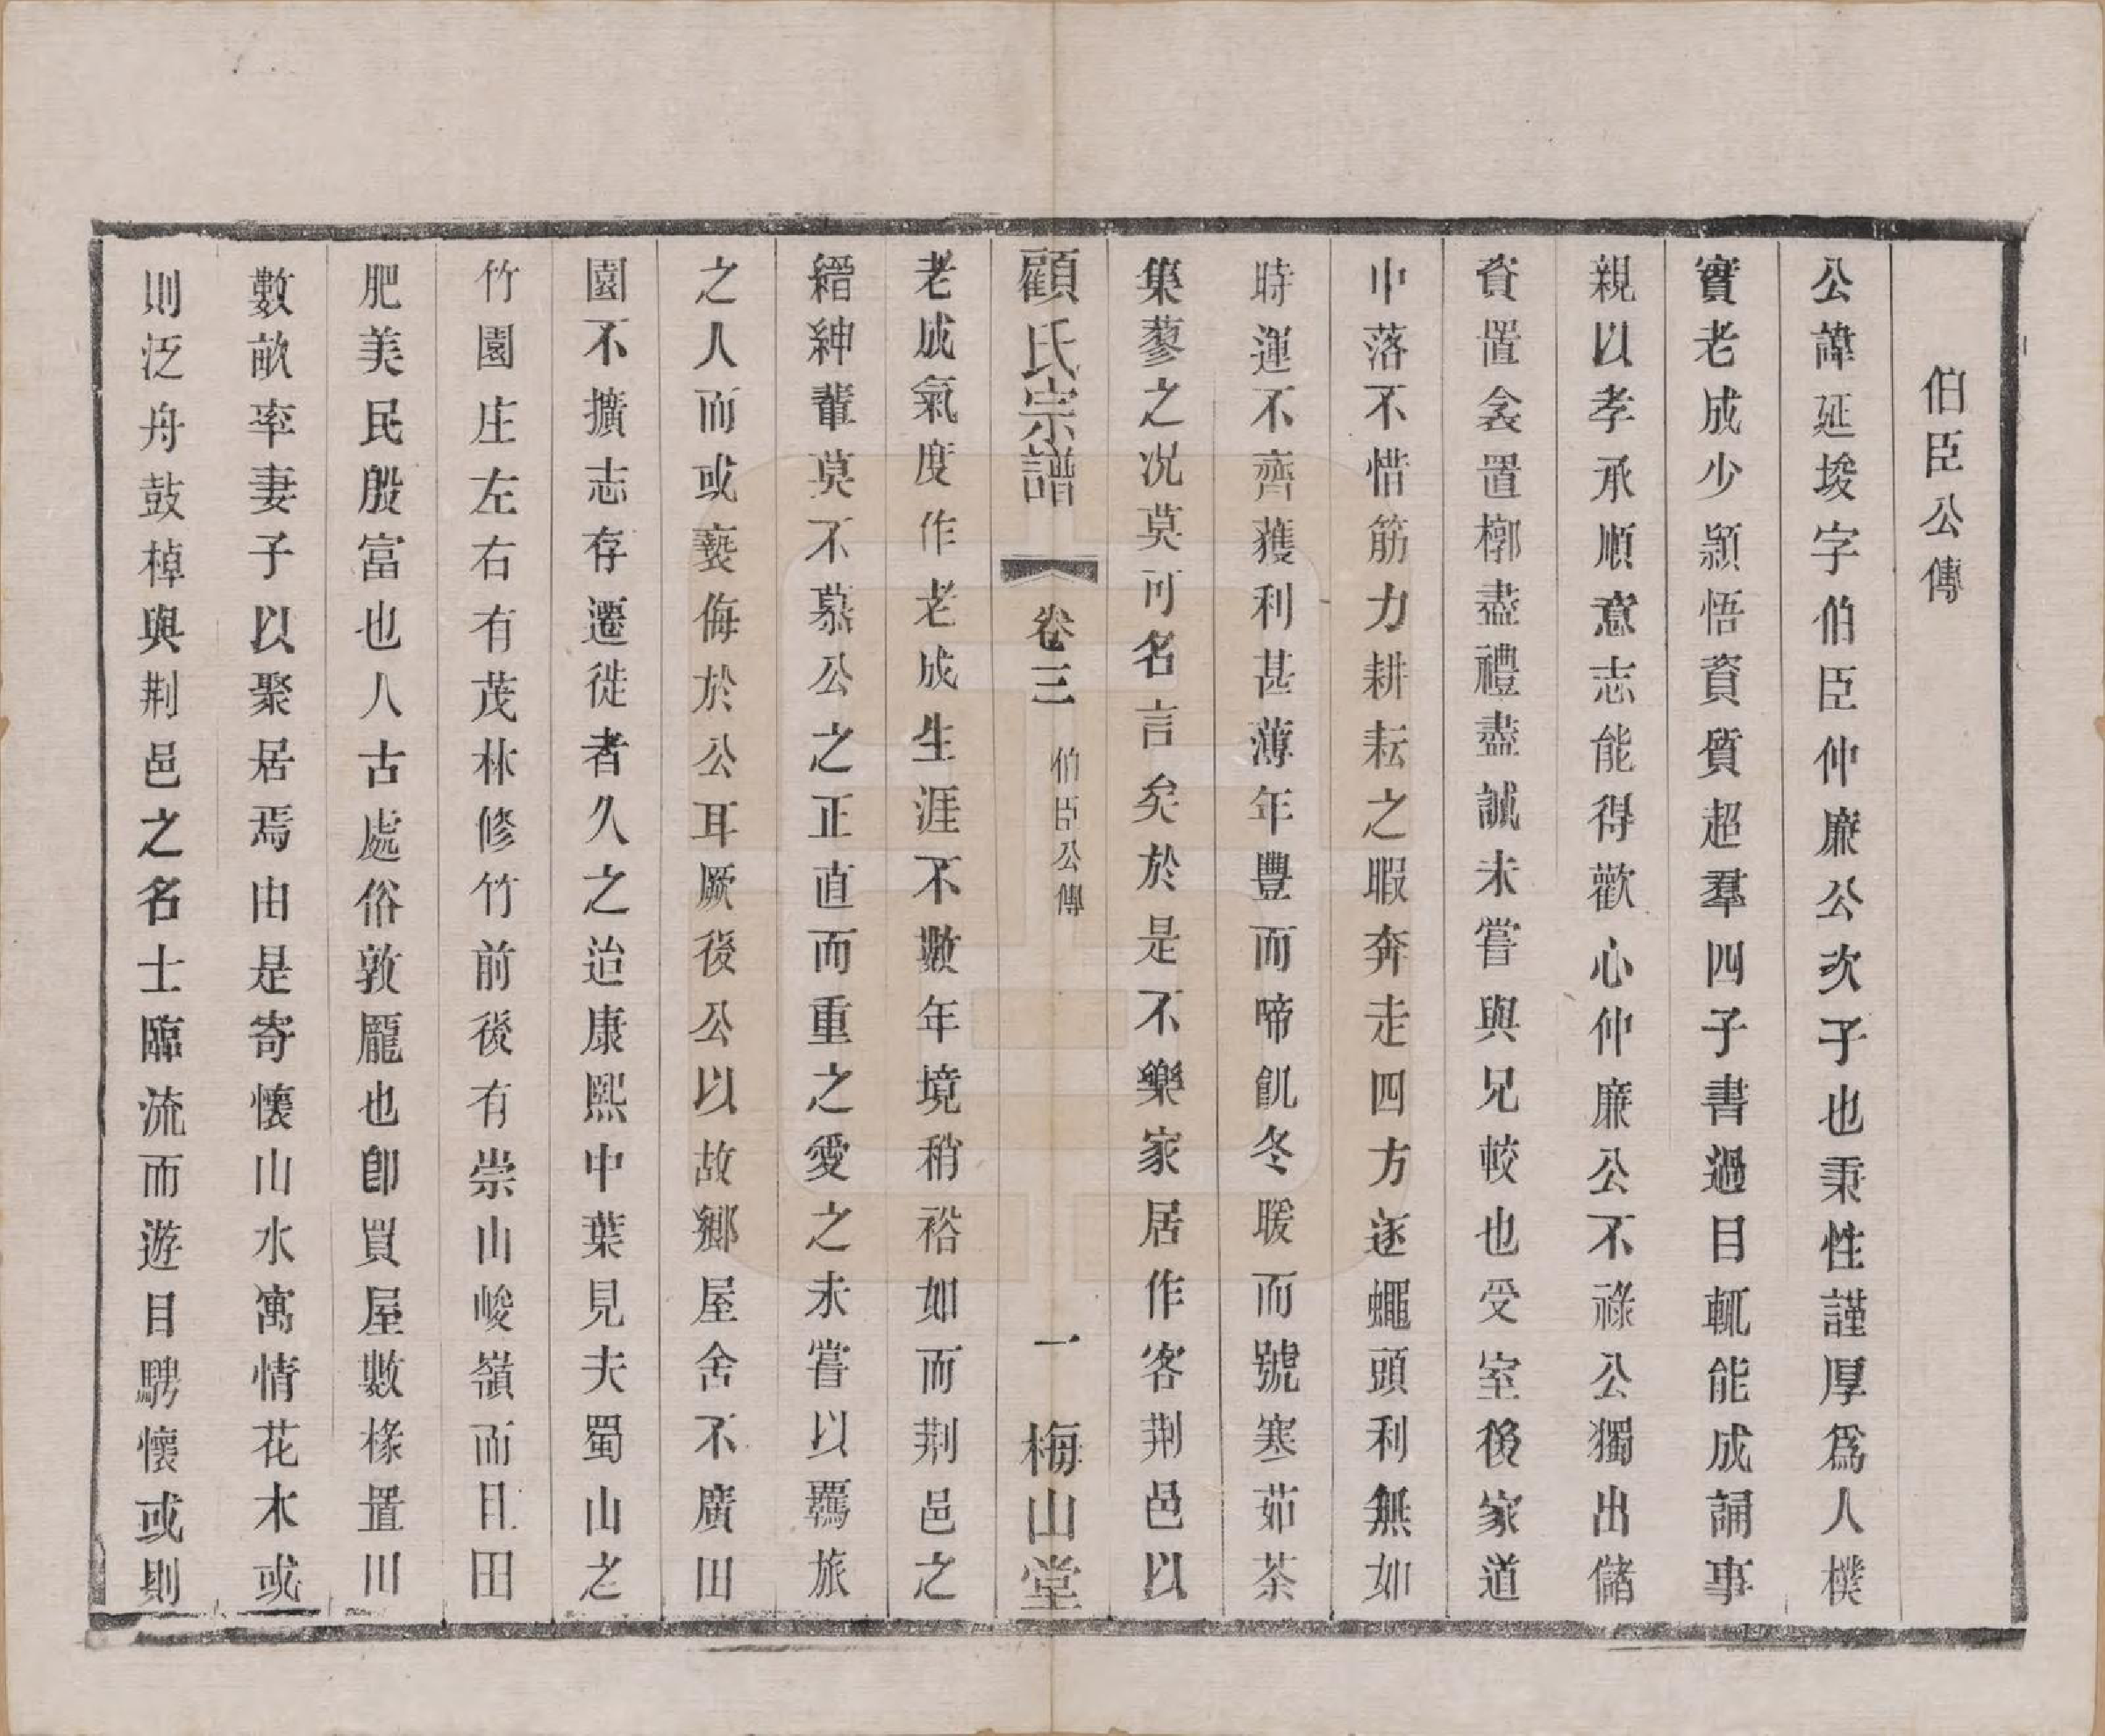 伯臣公傳
公諱延埈字伯臣仲廉公次子也秉性謹厚爲人樸
實老成少潁悟資質超羣四子書過目輒能成誦事
親以孝承順意志能得歡心仲廉公不祿公獨出儲
貲置衾置槨盡禮盡誠未嘗與兄較也受室後家道
中落不惜筋力耕耘之暇奔走四方逐蠅頭利無如
時運不齊獲利甚薄年豐而啼飢冬暖而號寒茹荼
集蓼之况莫可名言矣於是不樂家居作客荆邑以
顧氏宗譜 卷三 伯臣公傳 一 梅山堂
老成氣度作老成生涯不數年境稍裕如而荆邑之
縉紳輩莫不慕公之正直而重之愛之未嘗以羈旅
之人而或褻侮於公耳厥後公以故鄉屋舍不廣田
園不擴志存遷徙者久之迨康熙中葉見夫蜀山之
竹園庄左右有茂林修竹前後有崇山峻嶺而且田
肥美民殷富也人古處俗敦龐也卽買屋數椽置田
數畝率妻子以聚居焉由是寄懷山水寓情花木或
則泛舟鼓棹與荆邑之名士臨流而遊目騁懷或則